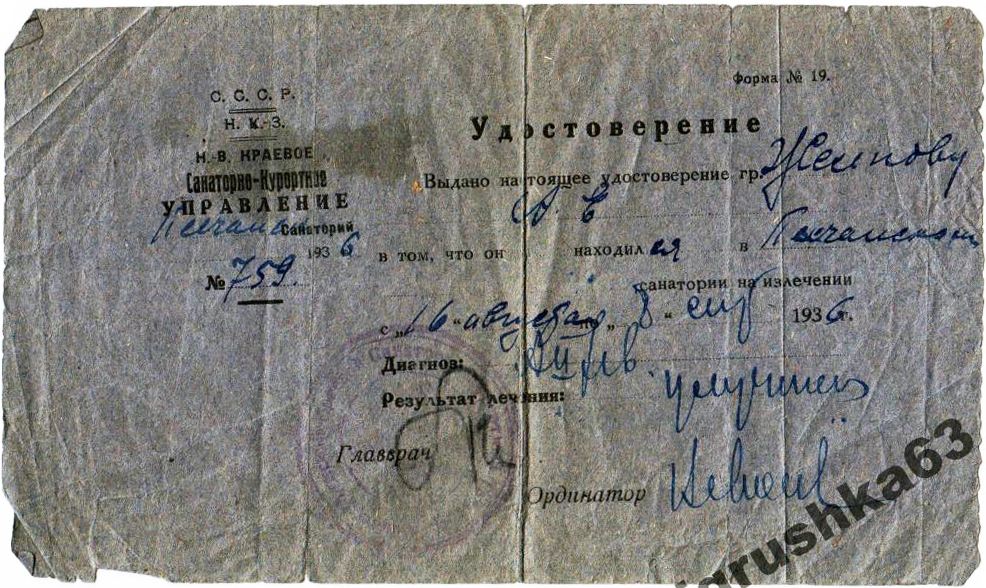 С. С. С. Р.
Н. К.-З.
Н.-В. КРАЕВОЕ
Санаторно-Курортное
УПРАВЛЕНИЕ
Санаторий
1936
№ 759
Форма № 19.
Удостоверение
Выдано настоящее удостоверение гр.
А. Е
в том, что он находился в Песчанском
санатории на излечении
с „16 “ августа по „ 8 “ сит 1936 г.
Диагноз:
Результат лечения:
Главврач
Ординатор
grushka63